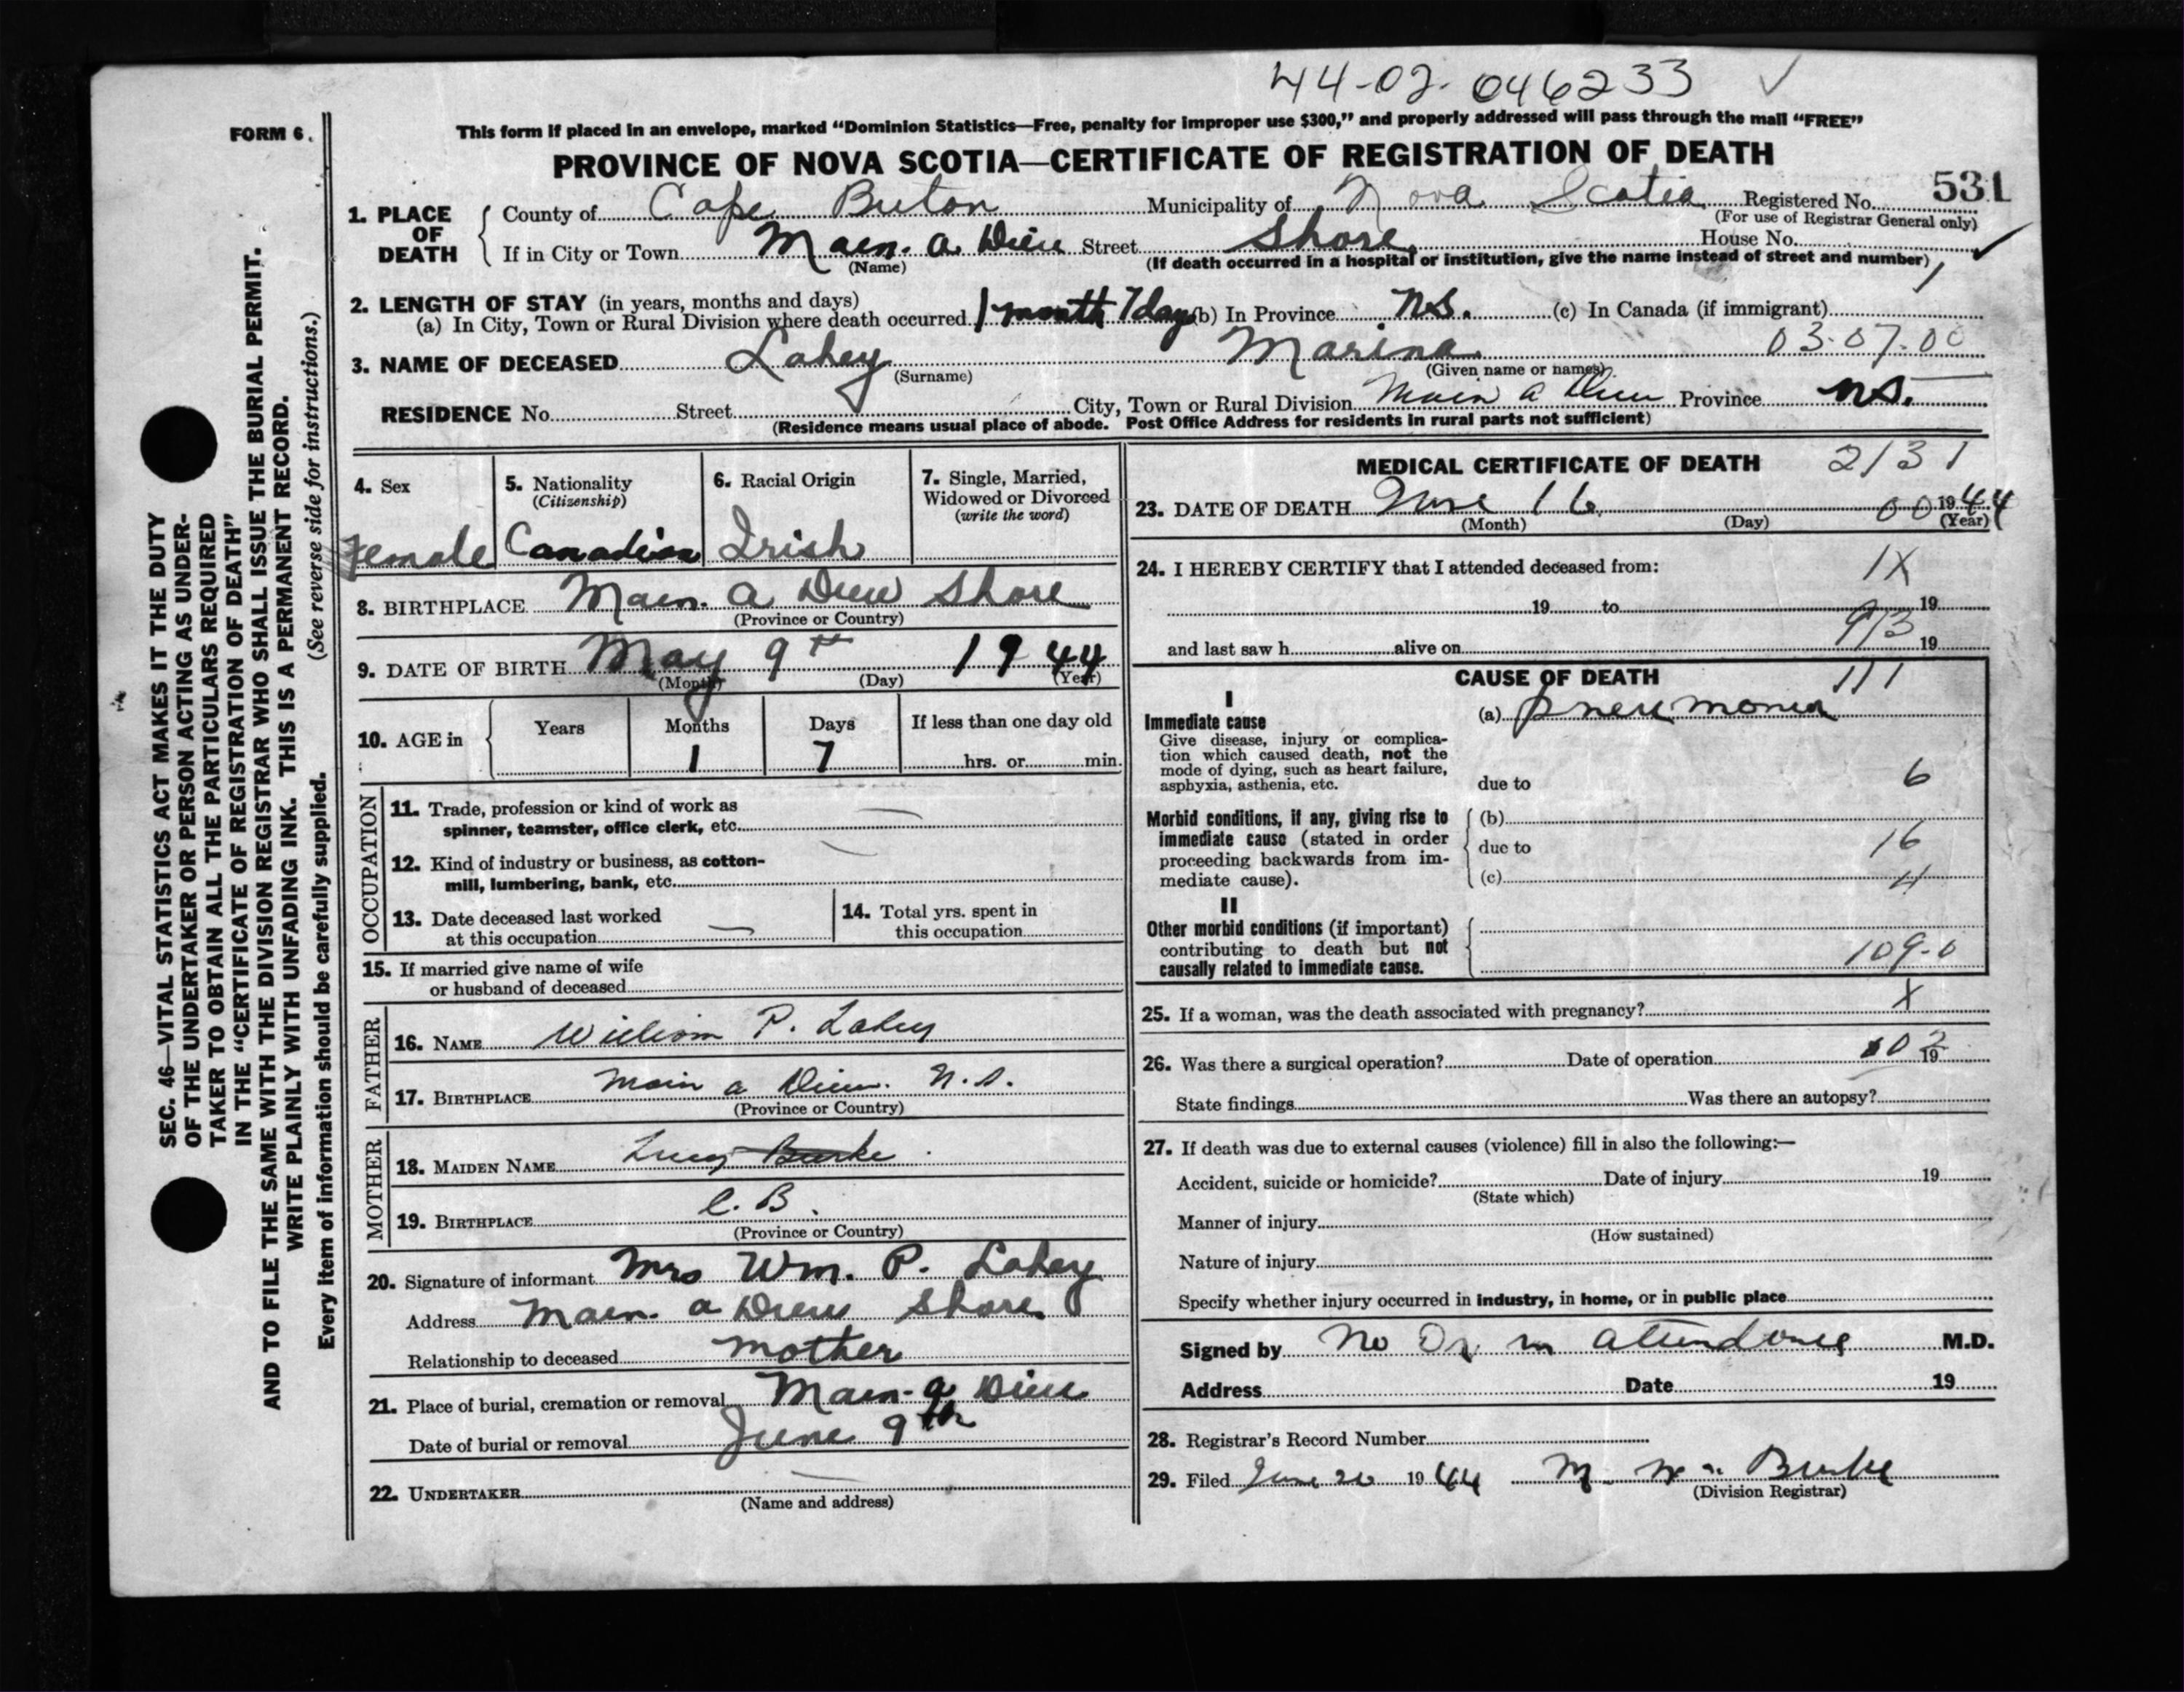 44-02-046233 ✓
FORM 6.
This form if placed in an envelope, marked “Dominion Statistics—Free, penalty for improper use $300,” and properly addressed will pass through the mail “FREE”
PROVINCE OF NOVA SCOTIA—CERTIFICATE OF REGISTRATION OF DEATH
531
1. PLACE OF DEATH
County of Cape Breton Municipality of Nova Scotia Registered No.
(For use of Registrar General only)
If in City or Town Main. a. Dieu Street Shore House No. ✓
(Name)
(If death occurred in a hospital or institution, give the name instead of street and number)
2. LENGTH OF STAY (in years, months and days)
(a) In City, Town or Rural Division where death occurred 1 month 7 days (b) In Province N.S. (c) In Canada (if immigrant) 1
3. NAME OF DECEASED Lahey Marina 03-07-00
(Surname) (Given name or names)
RESIDENCE No. Street City, Town or Rural Division Main a Dieu Province N.S.
(Residence means usual place of abode. Post Office Address for residents in rural parts not sufficient)
4. Sex
Female
5. Nationality
(Citizenship)
Canadian
6. Racial Origin
Irish
7. Single, Married,
Widowed or Divorced
(write the word)
8. BIRTHPLACE Main. a Dieu Shore
(Province or Country)
9. DATE OF BIRTH May 9th 1944
(Month) (Day) (Year)
10. AGE in
Years Months Days If less than one day old
1 7 hrs. or min.
OCCUPATION
11. Trade, profession or kind of work as
spinner, teamster, office clerk, etc. —
12. Kind of industry or business, as cotton-
mill, lumbering, bank, etc. —
13. Date deceased last worked
at this occupation —
14. Total yrs. spent in
this occupation
15. If married give name of wife
or husband of deceased
FATHER
16. NAME William P. Lahey
17. BIRTHPLACE Main a Dieu. N.S.
(Province or Country)
MOTHER
18. MAIDEN NAME Lucy Burke
19. BIRTHPLACE C.B.
(Province or Country)
20. Signature of informant Mrs Wm. P. Lahey
Address Main. a Dieu Shore
Relationship to deceased mother
21. Place of burial, cremation or removal Main-a Dieu
Date of burial or removal June 9th
22. UNDERTAKER —
(Name and address)
MEDICAL CERTIFICATE OF DEATH 2131
23. DATE OF DEATH June 16 00 1944
(Month) (Day) (Year)
24. I HEREBY CERTIFY that I attended deceased from: 1X
19 to 19
913
and last saw h alive on 19
CAUSE OF DEATH 111
I
Immediate cause
Give disease, injury or complica-
tion which caused death, not the
mode of dying, such as heart failure,
asphyxia, asthenia, etc.
(a) pneumonia
due to 6
Morbid conditions, if any, giving rise to
immediate cause (stated in order
proceeding backwards from im-
mediate cause).
(b)
due to 16
(c) 4
II
Other morbid conditions (if important)
contributing to death but not
causally related to immediate cause.
109-0
25. If a woman, was the death associated with pregnancy? X
26. Was there a surgical operation? Date of operation 19
State findings Was there an autopsy?
27. If death was due to external causes (violence) fill in also the following:—
Accident, suicide or homicide? Date of injury 19
(State which)
Manner of injury
(How sustained)
Nature of injury
Specify whether injury occurred in industry, in home, or in public place
Signed by No Dr in attendance M.D.
Address Date 19
28. Registrar's Record Number
29. Filed June 20 1944 Burke
(Division Registrar)
SEC. 46—VITAL STATISTICS ACT MAKES IT THE DUTY
OF THE UNDERTAKER OR PERSON ACTING AS UNDER-
TAKER TO OBTAIN ALL THE PARTICULARS REQUIRED
IN THE “CERTIFICATE OF REGISTRATION OF DEATH”
AND TO FILE THE SAME WITH THE DIVISION REGISTRAR WHO SHALL ISSUE THE BURIAL PERMIT.
WRITE PLAINLY WITH UNFADING INK. THIS IS A PERMANENT RECORD.
(See reverse side for instructions.)
Every item of information should be carefully supplied.